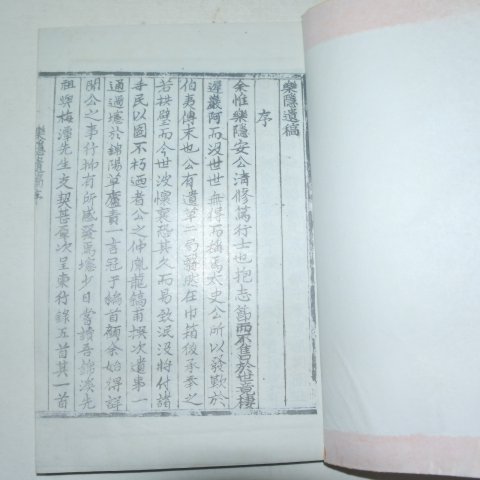 樂隱遺稿
序
余惟樂隱安公清修篤行士也抱志節而不售於世章棲
遲巖阿而没世無得而稱焉太史公所以發歎於
伯夷傳末也公有遺草一局發憋在巾箱後承奉之
若拱璧而今世波懷襄恐其久而易致泯没將付諸
手民以圖不朽洒者公之仲胤龍鎬甫撰次遺事一
通過壚於錦陽草廬責一言冠于編首顧余始得詳
聞公之事行抑有所感發焉壚少日嘗讀吾錦溪先
祖與梅潭先生交契甚厚次呈東行錄五首其一首